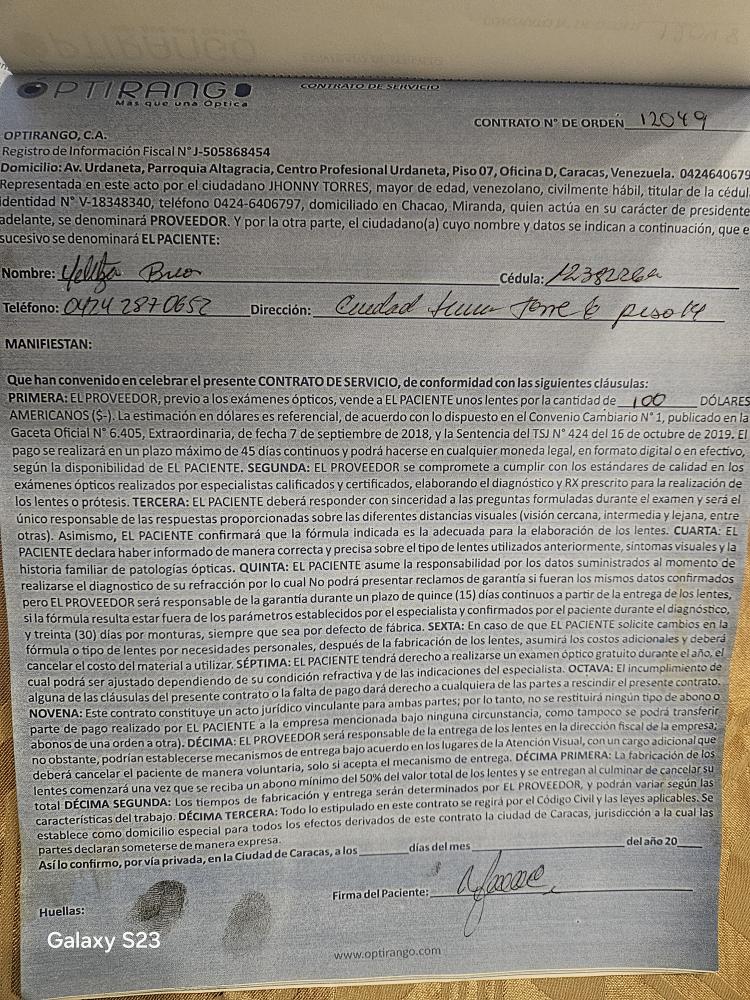 OPTIRANGO
Más que una Óptica
CONTRATO DE SERVICIO
CONTRATO N° DE ORDEN 12049
OPTIRANGO, C.A.
Registro de Información Fiscal N° J-505868454
Domicilio: Av. Urdaneta, Parroquia Altagracia, Centro Profesional Urdaneta, Piso 07, Oficina D, Caracas, Venezuela. 0424640679
Representada en este acto por el ciudadano JHONNY TORRES, mayor de edad, venezolano, civilmente hábil, titular de la cédul
identidad N° V-18348340, teléfono 0424-6406797, domiciliado en Chacao, Miranda, quien actúa en su carácter de presidente
adelante, se denominará PROVEEDOR. Y por la otra parte, el ciudadano(a) cuyo nombre y datos se indican a continuación, que e
sucesivo se denominará EL PACIENTE:
Nombre: Cédula:
Teléfono: 0424 2870652 Dirección: Ciudad Torre 6 piso 14
MANIFIESTAN:
Que han convenido en celebrar el presente CONTRATO DE SERVICIO, de conformidad con las siguientes cláusulas:
PRIMERA: EL PROVEEDOR, previo a los exámenes ópticos, vende a EL PACIENTE unos lentes por la cantidad de 100 DÓLARES
AMERICANOS ($-). La estimación en dólares es referencial, de acuerdo con lo dispuesto en el Convenio Cambiario N° 1, publicado en la
Gaceta Oficial N° 6.405, Extraordinaria, de fecha 7 de septiembre de 2018, y la Sentencia del TSJ N° 424 del 16 de octubre de 2019. El
pago se realizará en un plazo máximo de 45 días continuos y podrá hacerse en cualquier moneda legal, en formato digital o en efectivo,
según la disponibilidad de EL PACIENTE. SEGUNDA: EL PROVEEDOR se compromete a cumplir con los estándares de calidad en los
exámenes ópticos realizados por especialistas calificados y certificados, elaborando el diagnóstico y RX prescrito para la realización de
los lentes o prótesis. TERCERA: EL PACIENTE deberá responder con sinceridad a las preguntas formuladas durante el examen y será el
único responsable de las respuestas proporcionadas sobre las diferentes distancias visuales (visión cercana, intermedia y lejana, entre
otras). Asimismo, EL PACIENTE confirmará que la fórmula indicada es la adecuada para la elaboración de los lentes. CUARTA: EL
PACIENTE declara haber informado de manera correcta y precisa sobre el tipo de lentes utilizados anteriormente, síntomas visuales y la
historia familiar de patologías ópticas. QUINTA: EL PACIENTE asume la responsabilidad por los datos suministrados al momento de
realizarse el diagnostico de su refracción por lo cual No podrá presentar reclamos de garantía si fueran los mismos datos confirmados
pero EL PROVEEDOR será responsable de la garantía durante un plazo de quince (15) días continuos a partir de la entrega de los lentes,
si la fórmula resulta estar fuera de los parámetros establecidos por el especialista y confirmados por el paciente durante el diagnóstico,
y treinta (30) días por monturas, siempre que sea por defecto de fábrica. SEXTA: En caso de que EL PACIENTE solicite cambios en la
fórmula o tipo de lentes por necesidades personales, después de la fabricación de los lentes, asumirá los costos adicionales y deberá
cancelar el costo del material a utilizar. SÉPTIMA: EL PACIENTE tendrá derecho a realizarse un examen óptico gratuito durante el año, el
cual podrá ser ajustado dependiendo de su condición refractiva y de las indicaciones del especialista. OCTAVA: El incumplimiento de
alguna de las cláusulas del presente contrato o la falta de pago dará derecho a cualquiera de las partes a rescindir el presente contrato.
NOVENA: Este contrato constituye un acto jurídico vinculante para ambas partes; por lo tanto, no se restituirá ningún tipo de abono o
parte de pago realizado por EL PACIENTE a la empresa mencionada bajo ninguna circunstancia, como tampoco se podrá transferir
abonos de una orden a otra). DÉCIMA: EL PROVEEDOR será responsable de la entrega de los lentes en la dirección fiscal de la empresa;
no obstante, podrían establecerse mecanismos de entrega bajo acuerdo en los lugares de la Atención Visual, con un cargo adicional que
deberá cancelar el paciente de manera voluntaria, solo si acepta el mecanismo de entrega. DÉCIMA PRIMERA: La fabricación de los
lentes comenzará una vez que se reciba un abono mínimo del 50% del valor total de los lentes y se entregan al culminar de cancelar su
total DÉCIMA SEGUNDA: Los tiempos de fabricación y entrega serán determinados por EL PROVEEDOR, y podrán variar según las
características del trabajo. DÉCIMA TERCERA: Todo lo estipulado en este contrato se regirá por el Código Civil y las leyes aplicables. Se
establece como domicilio especial para todos los efectos derivados de este contrato la ciudad de Caracas, jurisdicción a la cual las
partes declaran someterse de manera expresa.
Así lo confirmo, por vía privada, en la Ciudad de Caracas, a los días del mes del año 20
Firma del Paciente:
Huellas:
Galaxy S23
www.optirango.com